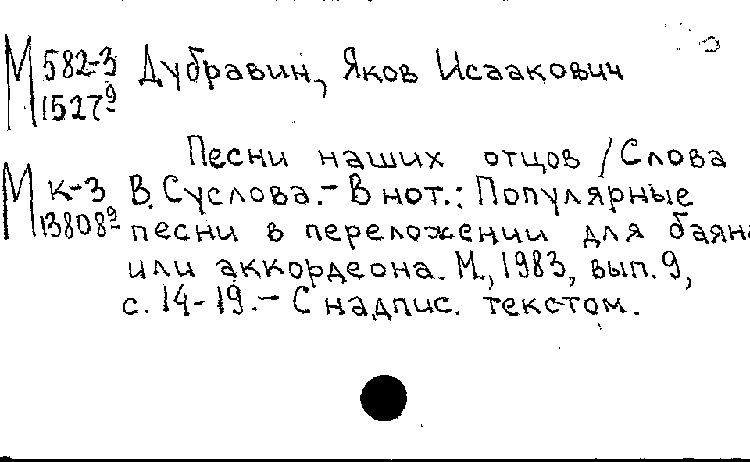 М 582-3 Дубравин, Яков Исаакович
1527⁹
Песни наших отцов / Слова
М к-3 В. Суслова. - В нот.: Популярные
13808⁹ песни в переложении для баяна
или аккордеона. М., 1983, вып. 9,
с. 14-19. - С надпис. текстом.